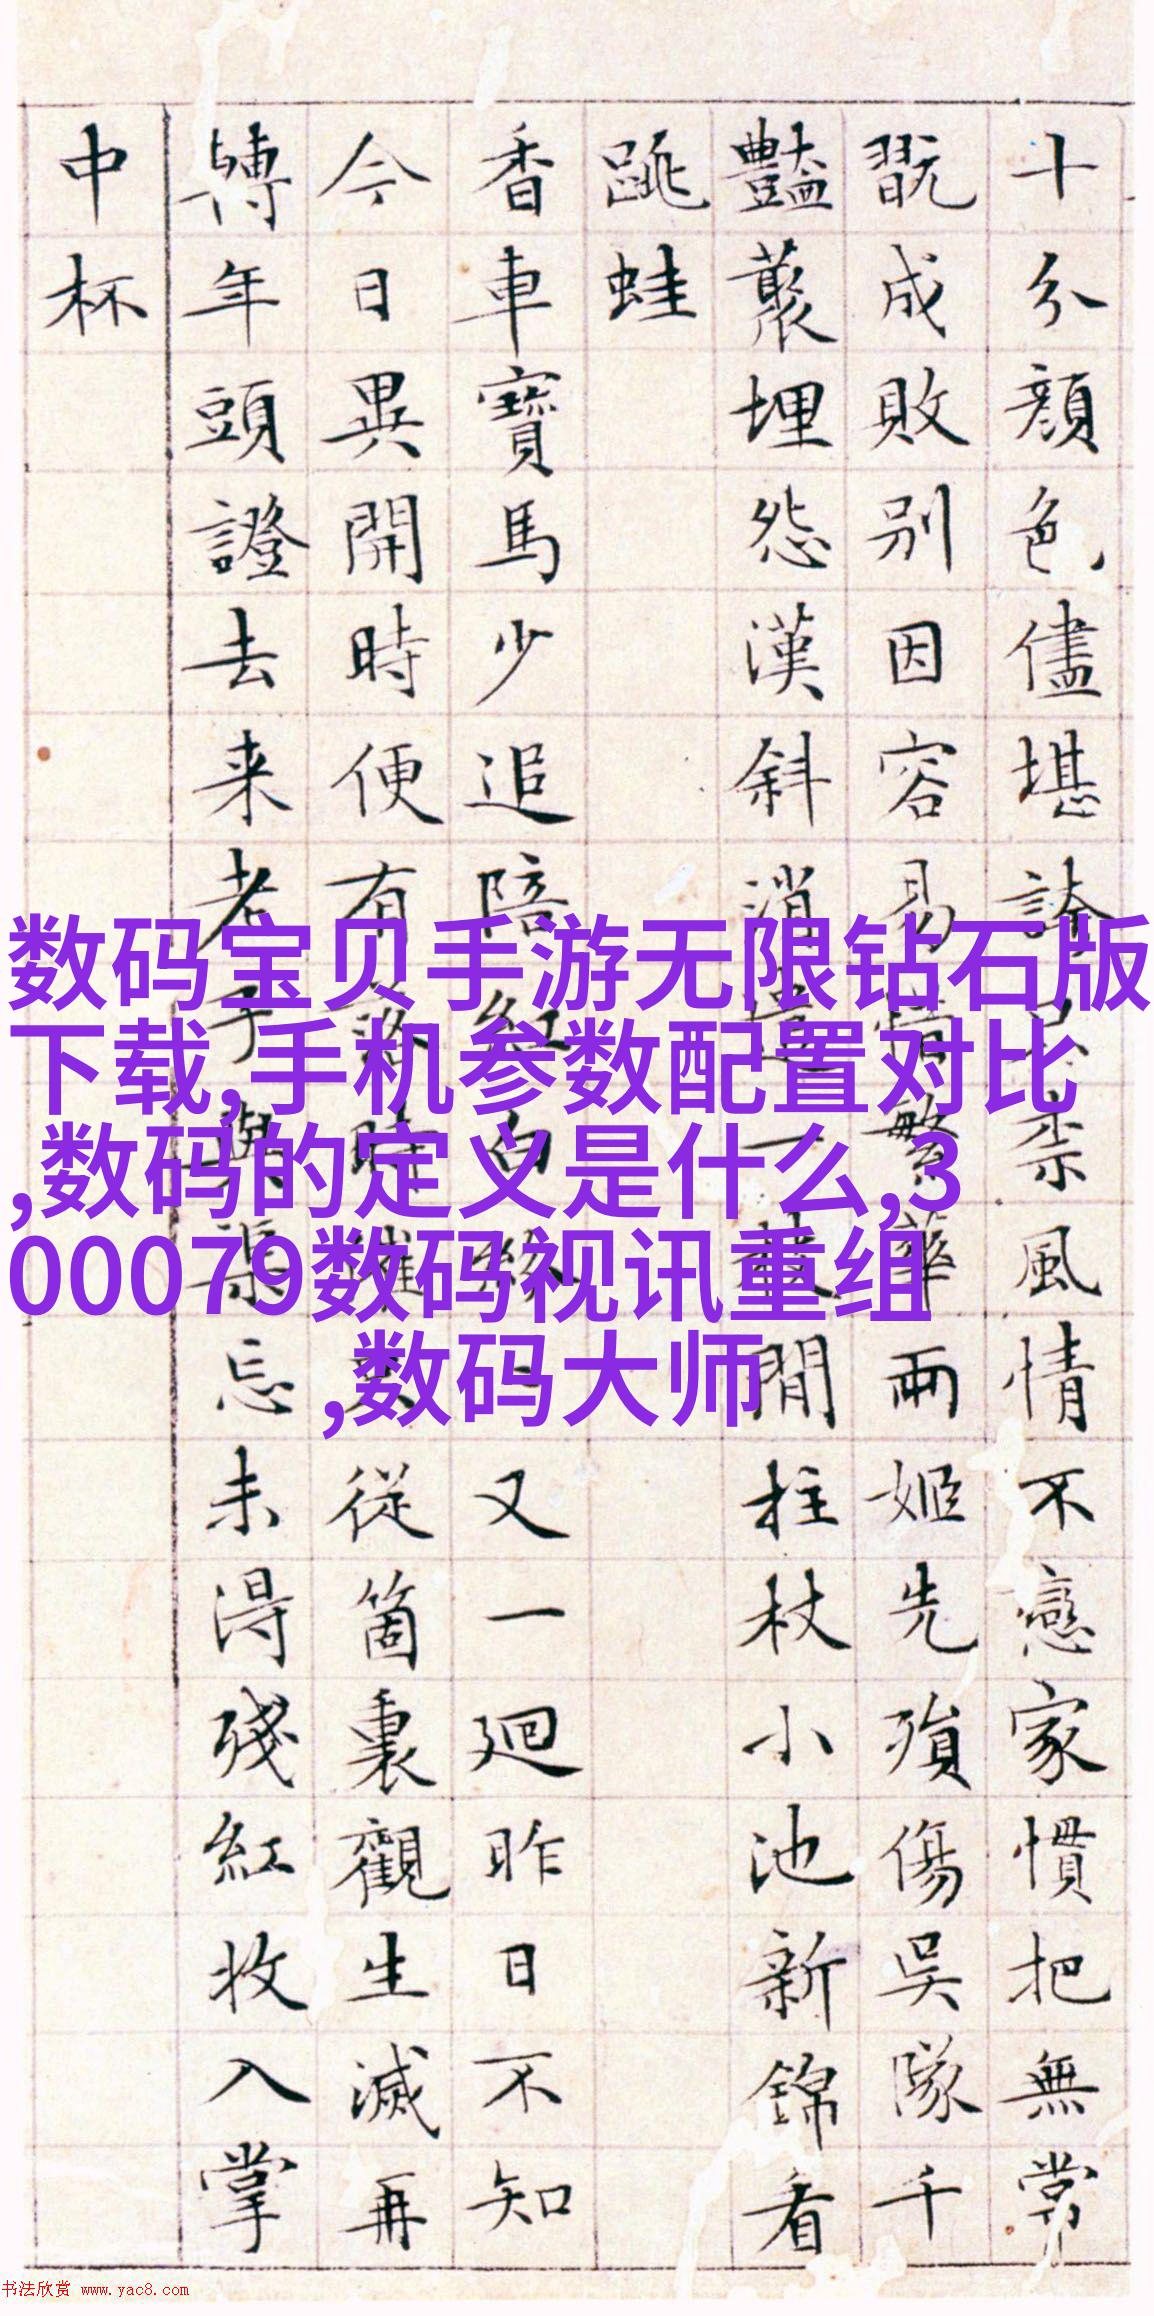 十分顔色儘堪誇只柰風情不戀家慣把無常
翫成敗別因容易情繁華兩姬先殞傷吳隊千
豔藂埋怨漢斜消遣一枝閒柱杖小池新錦看
跳蛙
香車寶馬少追陪紅白紛又一廻昨日不知
今日異開時便有落時催只從箇裏觀生滅再
轉年頭證去来老子與渠忘未淂殘紅收入掌
中杯
数码宝贝手游无限钻石版
下载,手机参数配置对比
,数码的定义是什么,3
00079数码视讯重组
,数码大师
书法欣赏 www.yac8.com